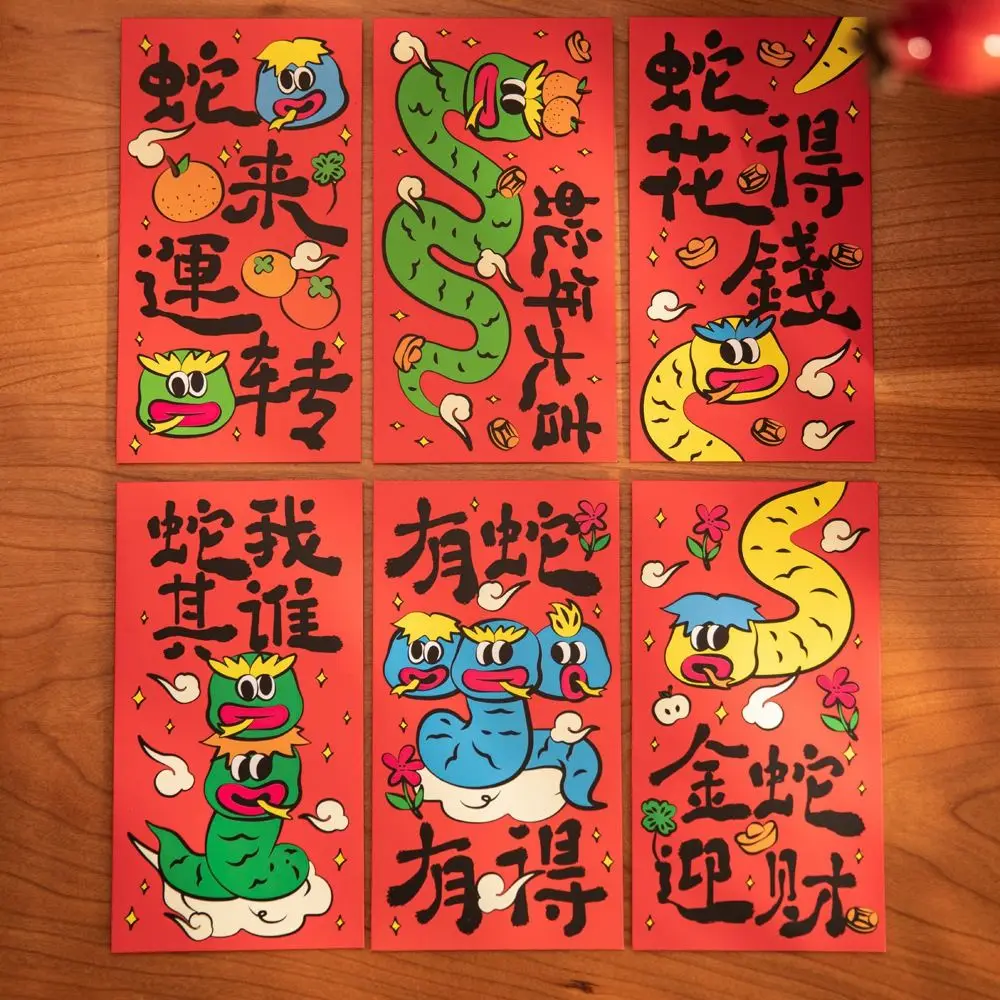 蛇
来
運
转
蛇年大吉
蛇
花得
錢
蛇我
其谁
有蛇
有得
金蛇
迎财